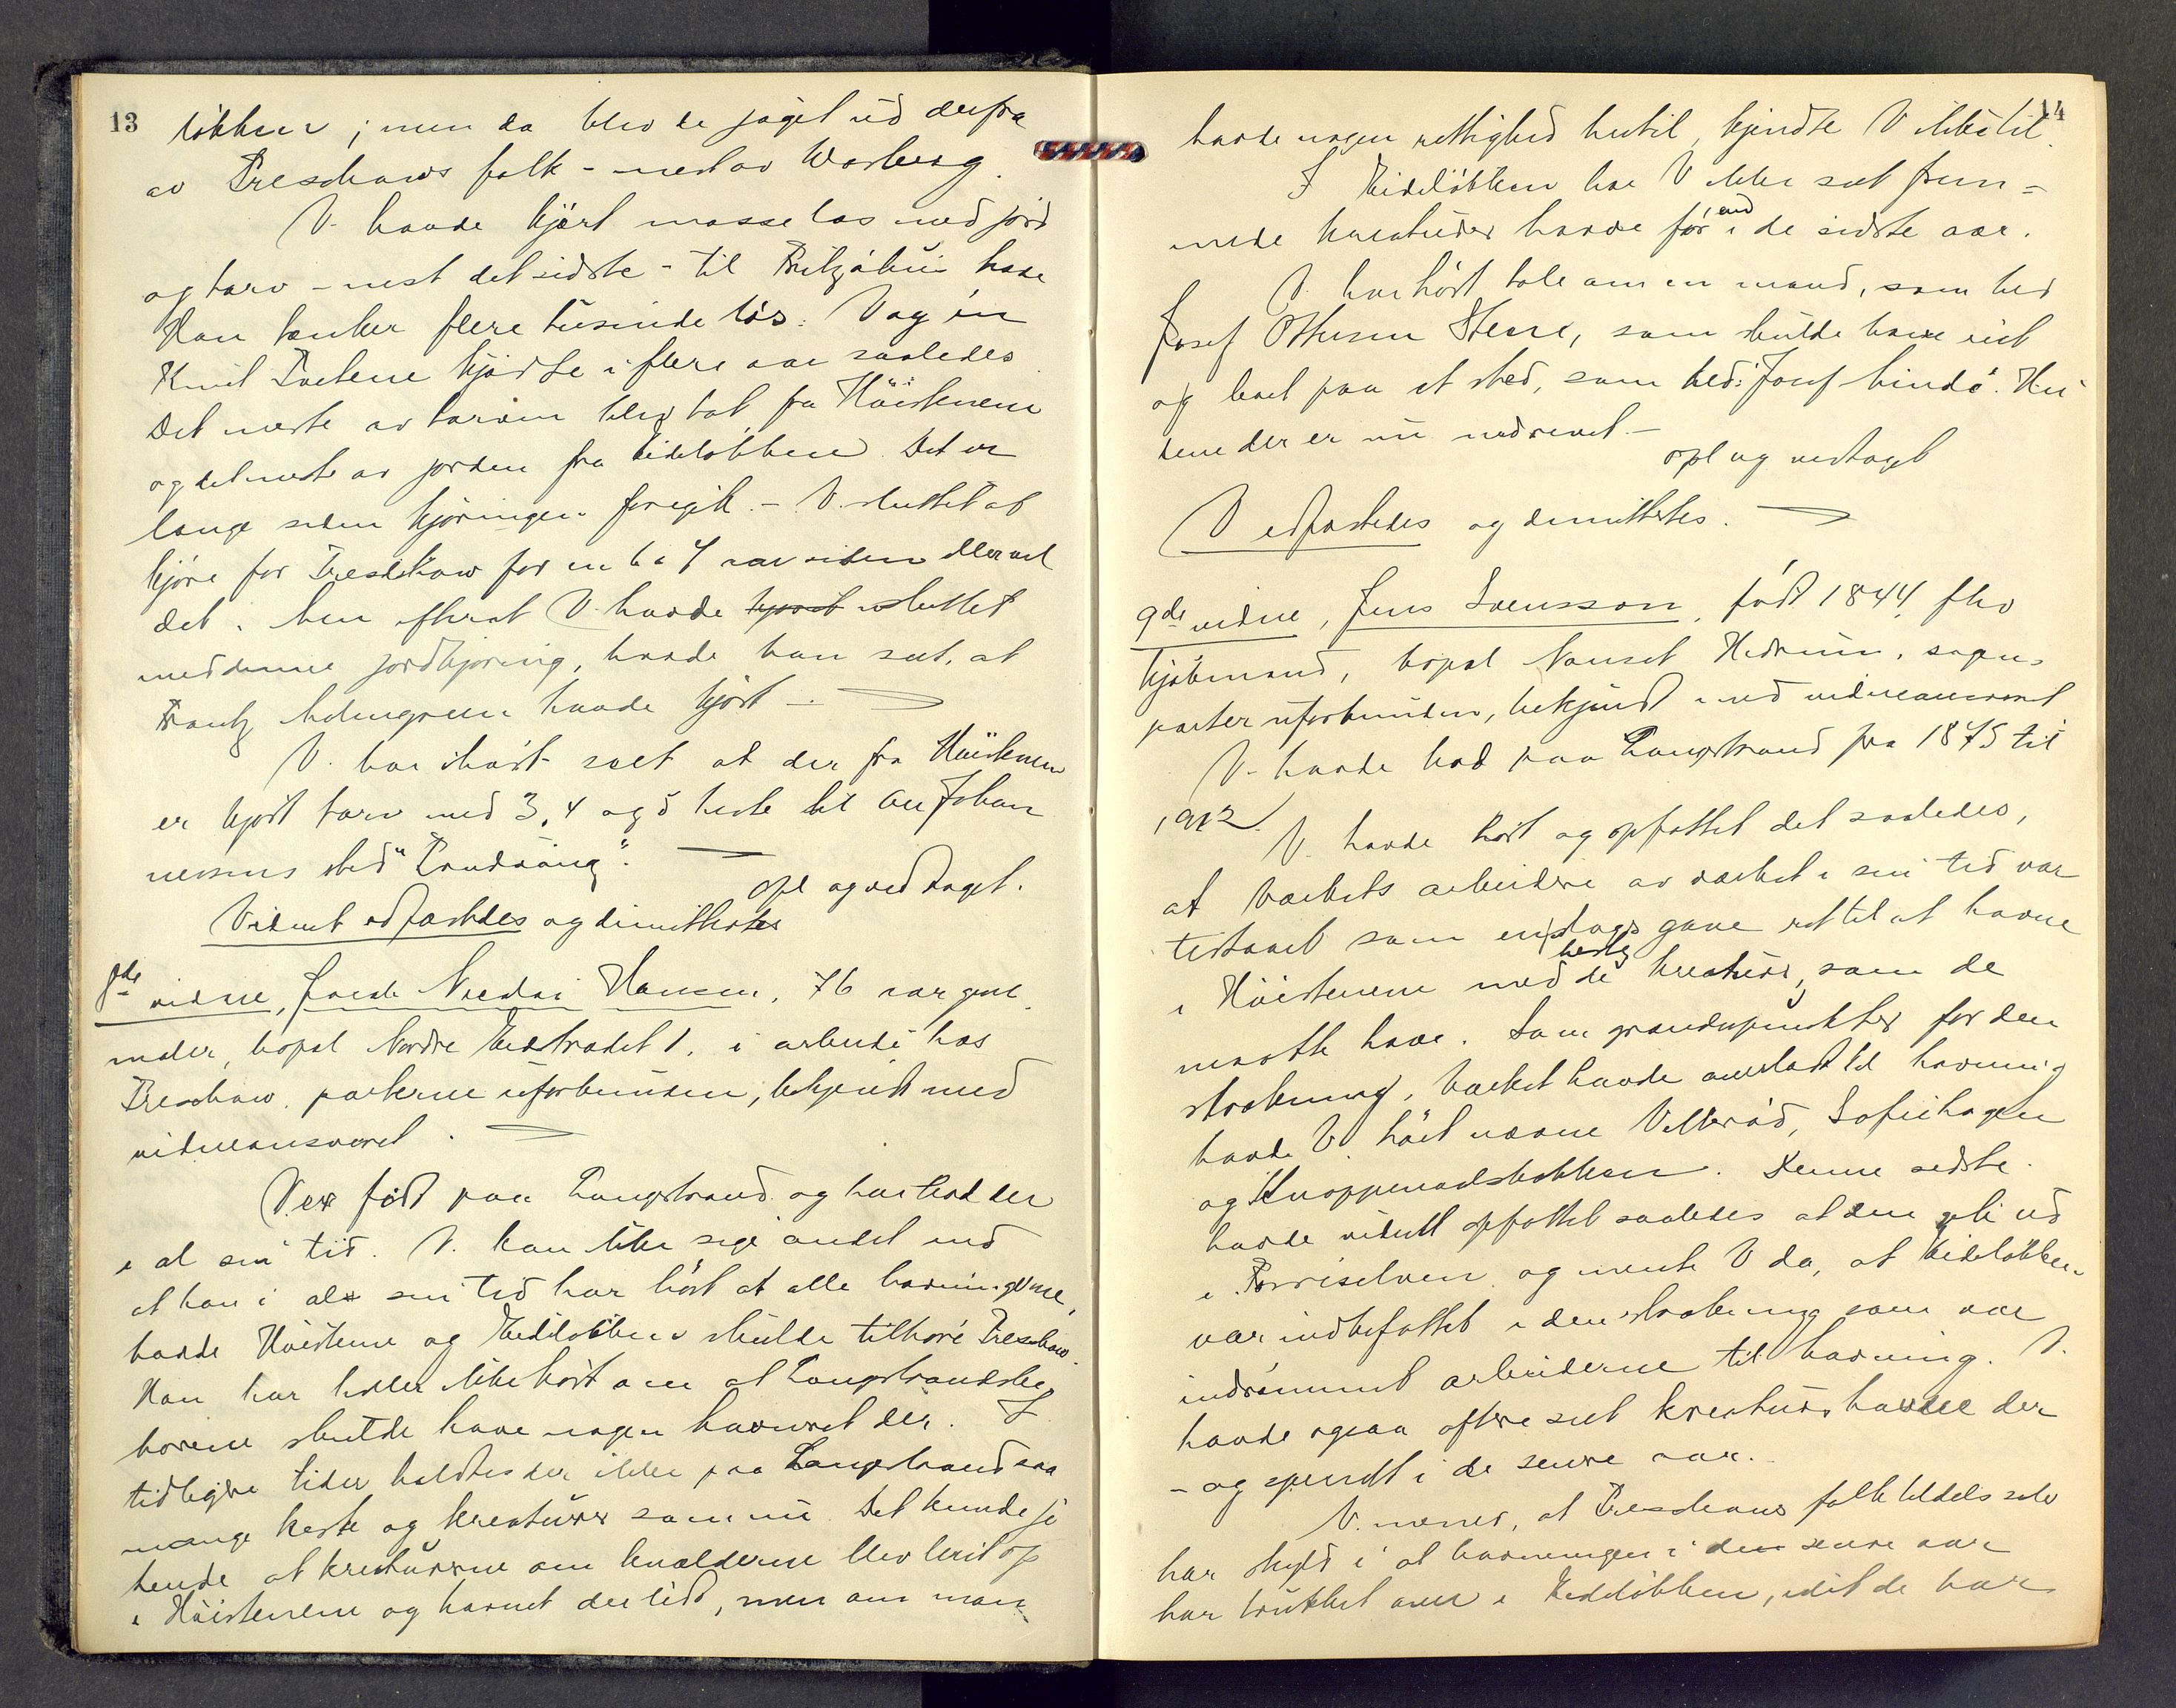 13
løkken; men da blev de jaget ud derfra
av Treschows folk - mest av Warberg.
V. havde kjørt masse las med jord
og tarv - mest det sidste - til Fritzøhus have
Han tænker flere tusinde læs. V og en
Knut Tvetene kjørte i flere aar saaledes
Det meste av tarven blev tat fra Høistenene
og det meste av jorden fra Eideløkken. Det er
lange siden kjøringen foregik. - V. sluttet at
kjøre for Treschow for en 6 a 7 aar siden eller vel
det. Men efterat V. havde kjørt sluttet
med denne jordkjøring, havde han set, at
Frantz Holmgreen havde kjørt -
V. har ihøst seet at der fra Høistenene
er kjørt tarv med 3, 4 og 5 heste til Johan
nessens sted "Tendvang".
Opl og vedtaget.
Vidnet edfæstedes og dimitteredes
8de vidne, Jacob Nicolai Hansen, 76 aar gml.
maler, bopæl Nordre Eidstrødet 1, i arbeide hos
Treschow, parterne uforbunden, bekjendt med
vidneansvaret.
V. er født paa Langestrand og har bod der
i al sin tid. V. kan ikke sige andet end
at han i al sin tid har hørt at alle havningerne,
baade Høistene og Eideløkken skulde tilhøre Treschow.
Han har heller ikke hørt om at Langestrandsbe
boerne skulde have nogen havneret der. I
tidligere tider holdtes der ikke paa Langestrand saa
mange heste og kreaturer som nu. Det kunde je
hende at kreaturerne om kvælderne blev leiet op
i Høistenene og havnet der lidt, men om man
14
havde nogen rettighed hertil, kjendte V ikke til.
I Eideløkken har V ikke set frem=
mede kreaturer havne før end i de sidste aar.
V. har hørt tale om en mand, som hed
Josef Ottersen Steere, som skulde have eiet
og boet paa et sted, som hed: "Josef hindø". Hu
sene der er nu nedrevet. -
opl og vedtaget
V edfæstedes og dimittertes.
9de vidne, Jens Svensson, født 1844, fhv
kjøbmand, bopæl Nanset Hedrum, sagens
parter uforbunden, bekjendt med vidneansvaret
V. havde bod paa Langestrand fra 1875 til
1912.
V. havde hørt og opfattet det saaledes,
at værkets arbeidere av værket i sin tid var
tilstaaet som en slags gave ret til at havne
i Høistenene med de heste kreaturer, som de
maatte have. Som grændsepunkter for den
strækning, værket havde anvist til havning
havde V. hørt nævne Vellerød, Sofiehagen
og Knoppenadsbakken. Denne sidste
havde vidnet opfattet saaledes at den gik ud
i Farriselven og mente V da, at Eideløkken
var indbefattet i den strækning som var
indrømmet arbeiderne til havning. V.
havde ogsaa oftere set kreaturer havne der
- og specielt i de senere aar.
V. mener, at Treschows folk tildels selv
har skyld i at havningen i den senere aar
har trukket over i Eideløkken, idet de har